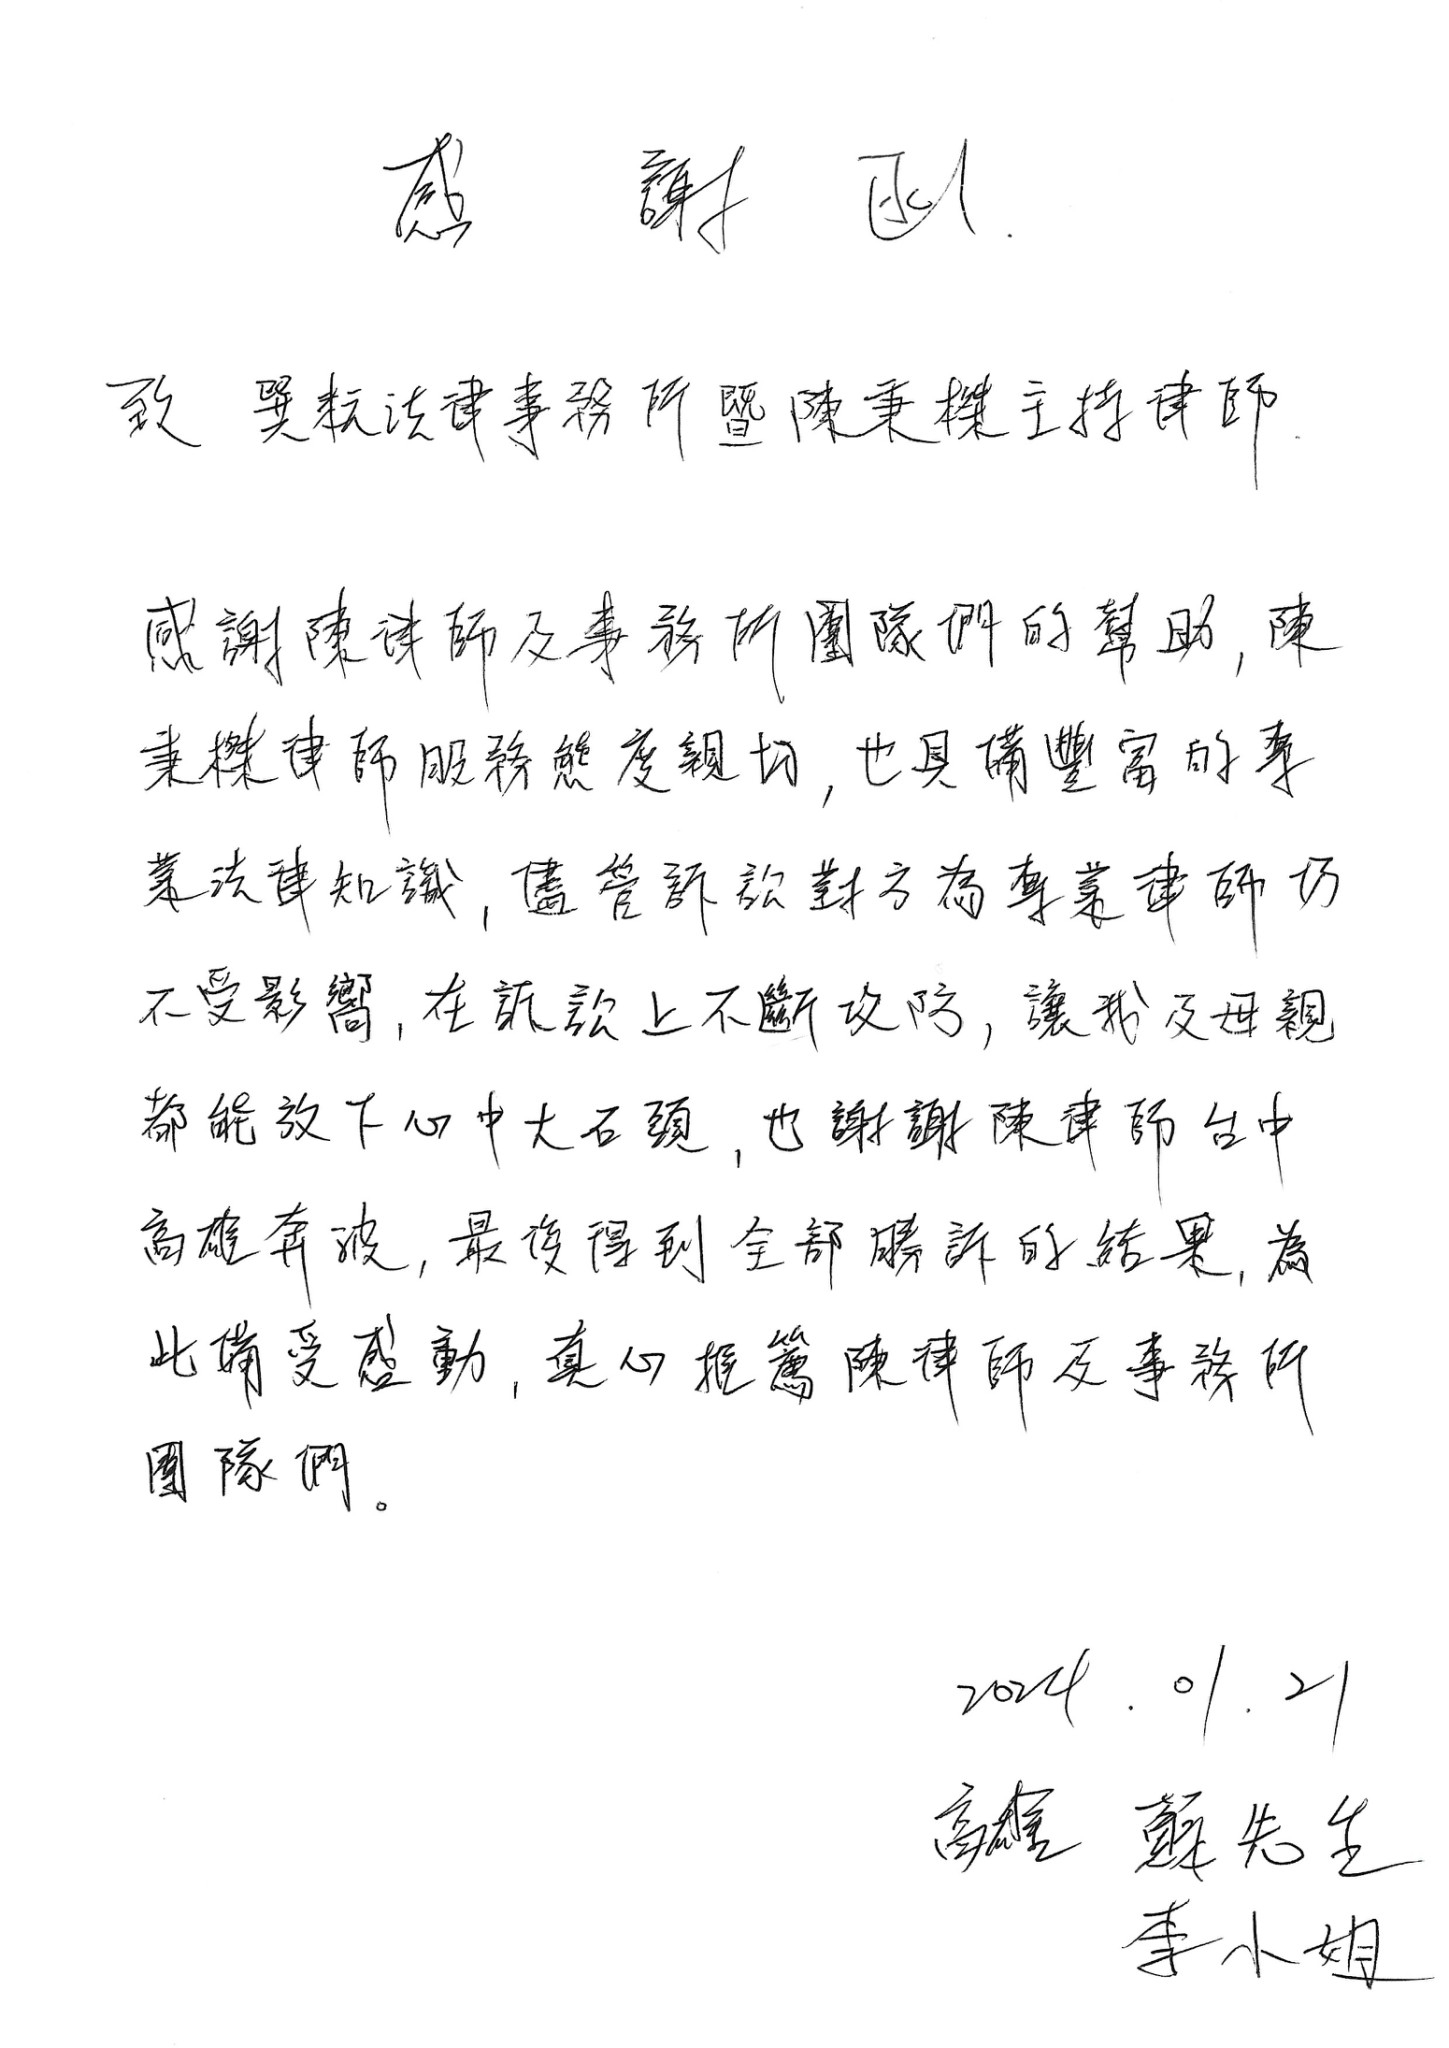 感謝函.
致 巽耘法律事務所暨陳秉榤主持律師.
感謝陳律師及事務所團隊們的幫助,陳
秉榤律師服務態度親切,也具備豐富的專
業法律知識,儘管訴訟對方為專業律師仍
不受影響,在訴訟上不斷攻防,讓我及母親
都能放下心中大石頭,也謝謝陳律師台中
高雄奔波,最後得到全部勝訴的結果,為
此備受感動,真心推薦陳律師及事務所
團隊們。
2024.01.21
高雄 蘇先生
李小姐